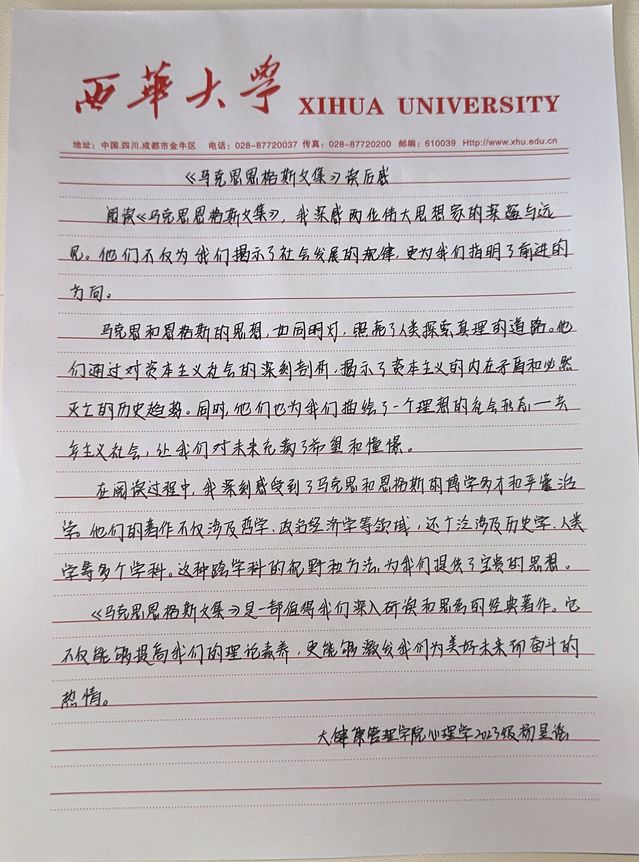 西華大学 XIHUA UNIVERSITY
地址：中国.四川.成都市金牛区 电话：028-87720037 传真：028-87720200 邮编：610039 Http://www.xhu.edu.cn
《马克思恩格斯文集》读后感
阅读《马克思恩格斯文集》，我深感两位伟大思想家的深邃与远
见。他们不仅为我们揭示了社会发展的规律，更为我们指明了前进的
方向。
马克思和恩格斯的思想，如同明灯，照亮了人类探索真理的道路。他
们通过对资本主义社会的深刻剖析，揭示了资本主义的内在矛盾和必然
灭亡的历史趋势。同时，他们也为我们描绘了一个理想的社会形态——共
产主义社会，让我们对未来充满了希望和憧憬。
在阅读过程中，我深刻感受到了马克思和恩格斯的博学多才和严谨治
学。他们的著作不仅涉及哲学、政治经济学等领域，还广泛涉及历史学、人类
学等多个学科。这种跨学科的视野和方法，为我们提供了宝贵的思想。
《马克思恩格斯文集》是一部值得我们深入研读和思考的经典著作。它
不仅能够提高我们的理论素养，更能够激发我们为美好未来而奋斗的
热情。
大健康管理学院心理学2023级杨昱